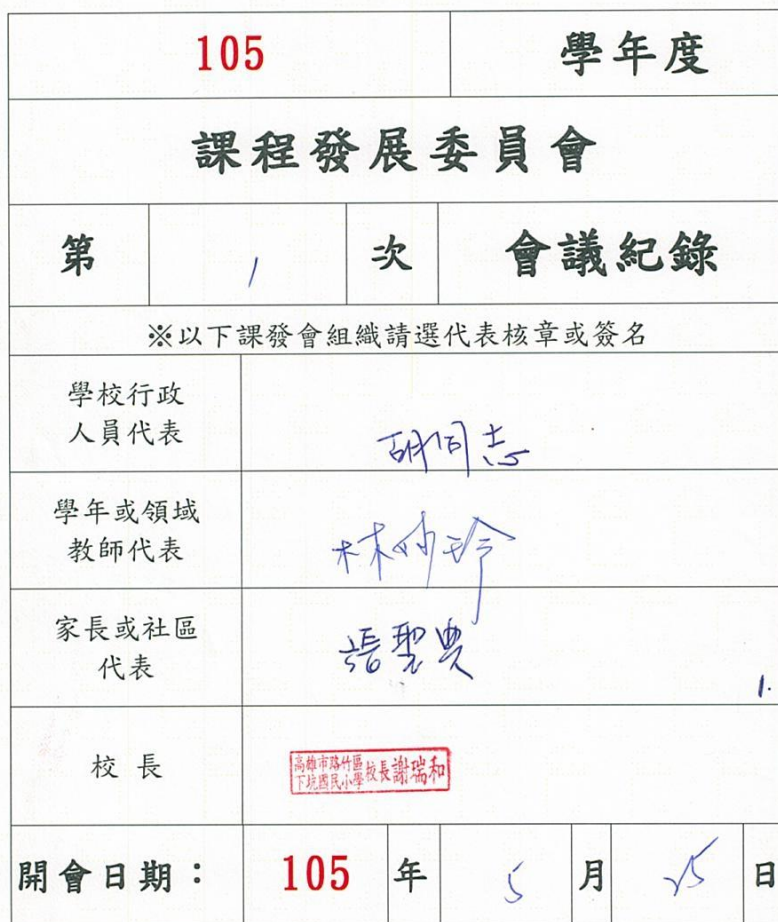 105 學年度
課程發展委員會
第 1 次 會議紀錄
※以下課發會組織請選代表核章或簽名
學校行政
人員代表
胡同志
學年或領域
教師代表
林妙玲
家長或社區
代表
1.
校長
高雄市路竹區
下坑國民小學
校長謝瑞和
開會日期：105 年 5 月 25 日